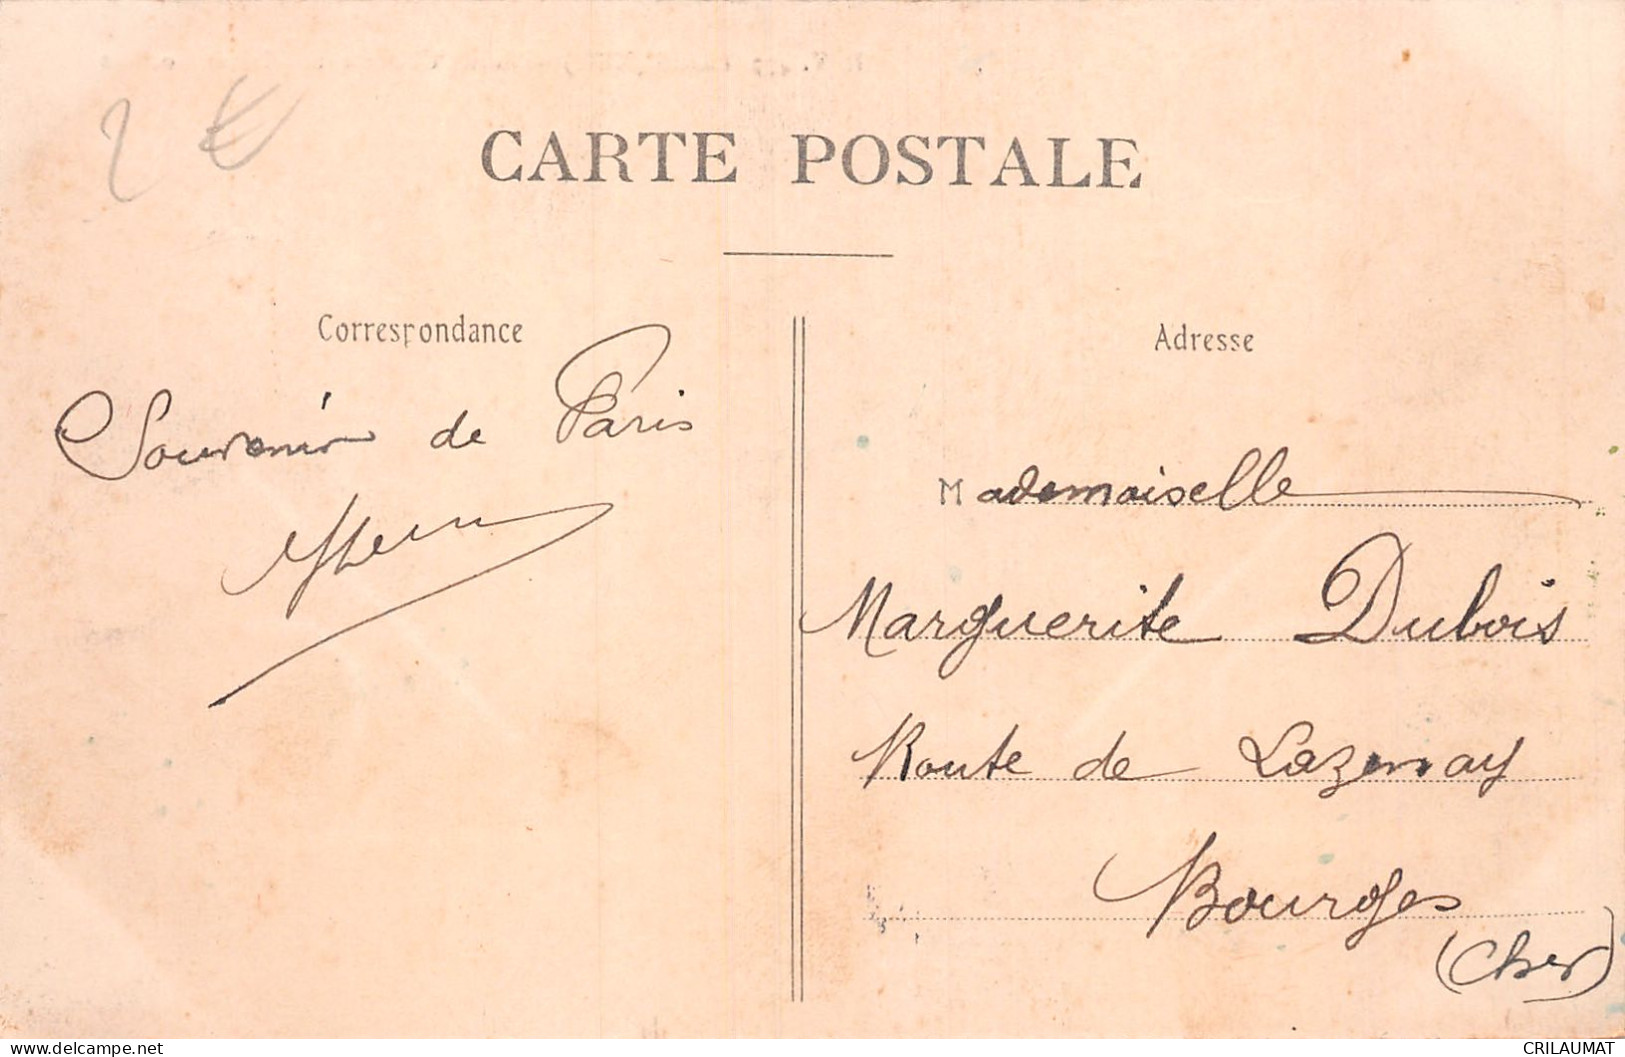 2 €
CARTE POSTALE
Correspondance
Souvenir de Paris
Adresse
Mademoiselle
Marguerite Dubois
Route de Lazenay
Bourges
(Cher)
delcampe.net
CRILAUMAT